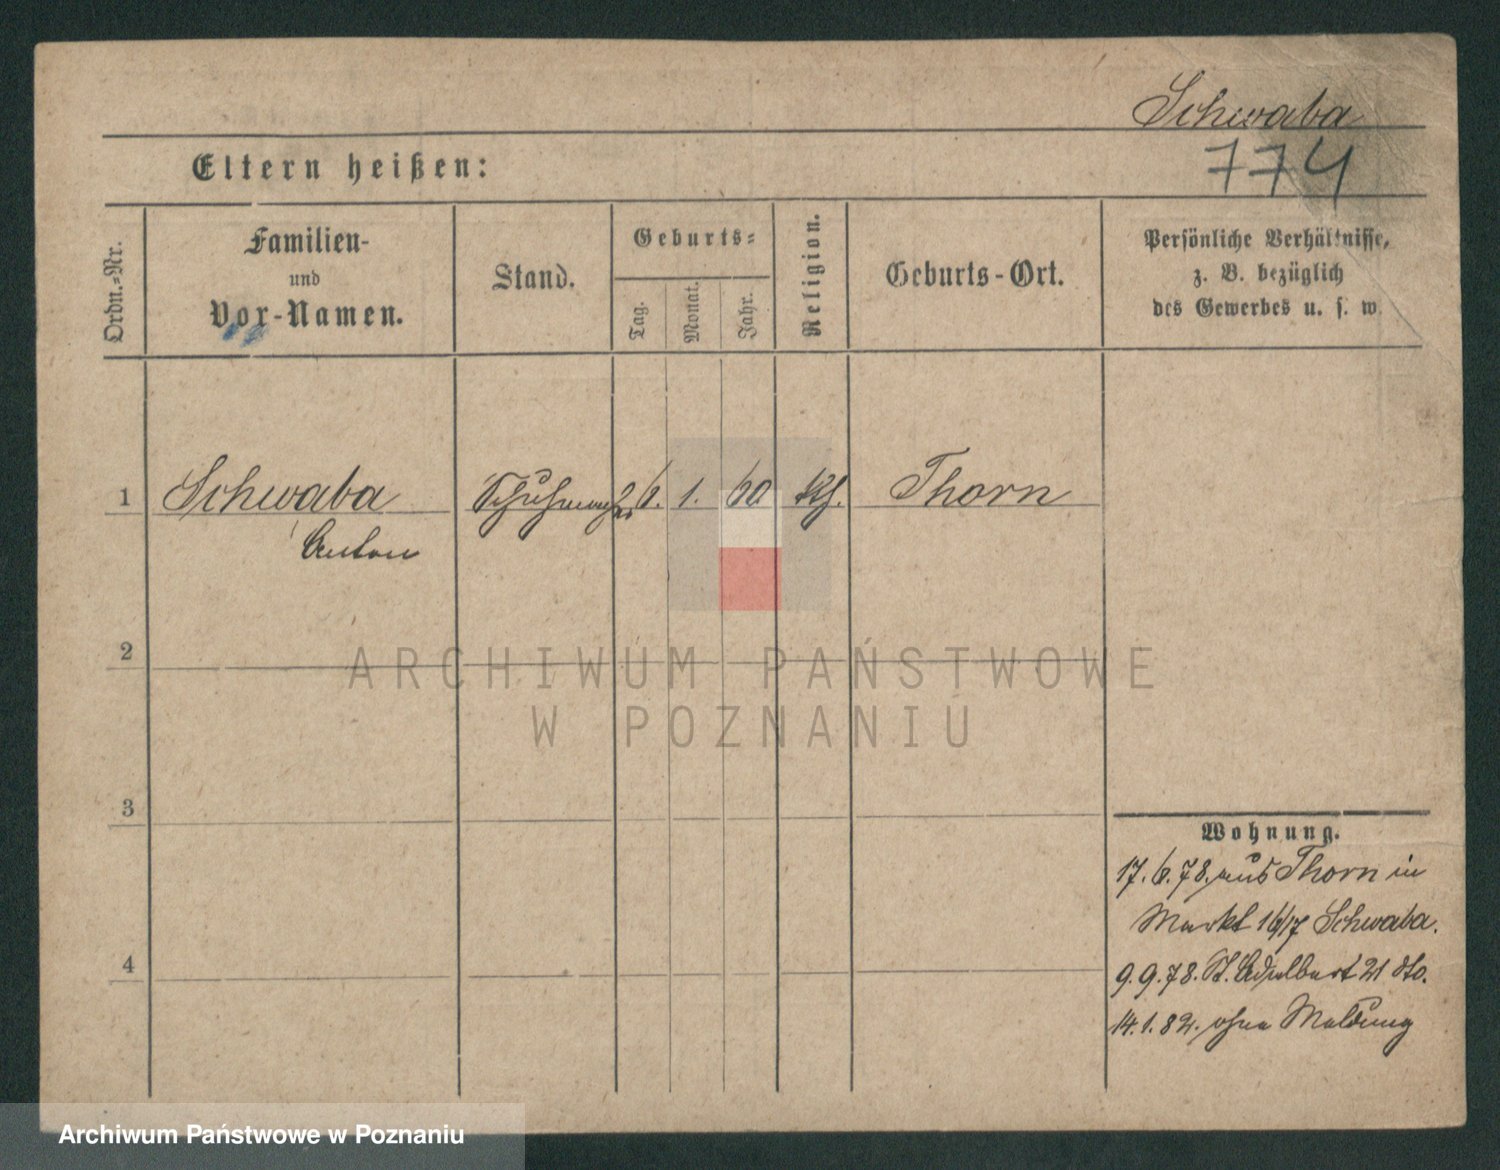 Schwaba
774
Eltern heißen:
Ordn.-Nr.
Familien-
und
Vor-Namen.
Stand.
Geburts-
Tag.
Monat.
Jahr.
Religion.
Geburts-Ort.
Persönliche Verhältnisse,
z. B. bezüglich
des Gewerbes u. s. w.
1 Schwaba Schuhmacher 6. 1. 60 kth. Thorn
Anton
2
ARCHIWUM PAŃSTWOWE
W POZNANIU
3
Wohnung.
17. 6. 78. aus Thorn in
Markt 16/17 Schwaba.
4
9. 9. 78. St. Adalbert 21 dto.
14. 1. 82. ohne Meldung
Archiwum Państwowe w Poznaniu